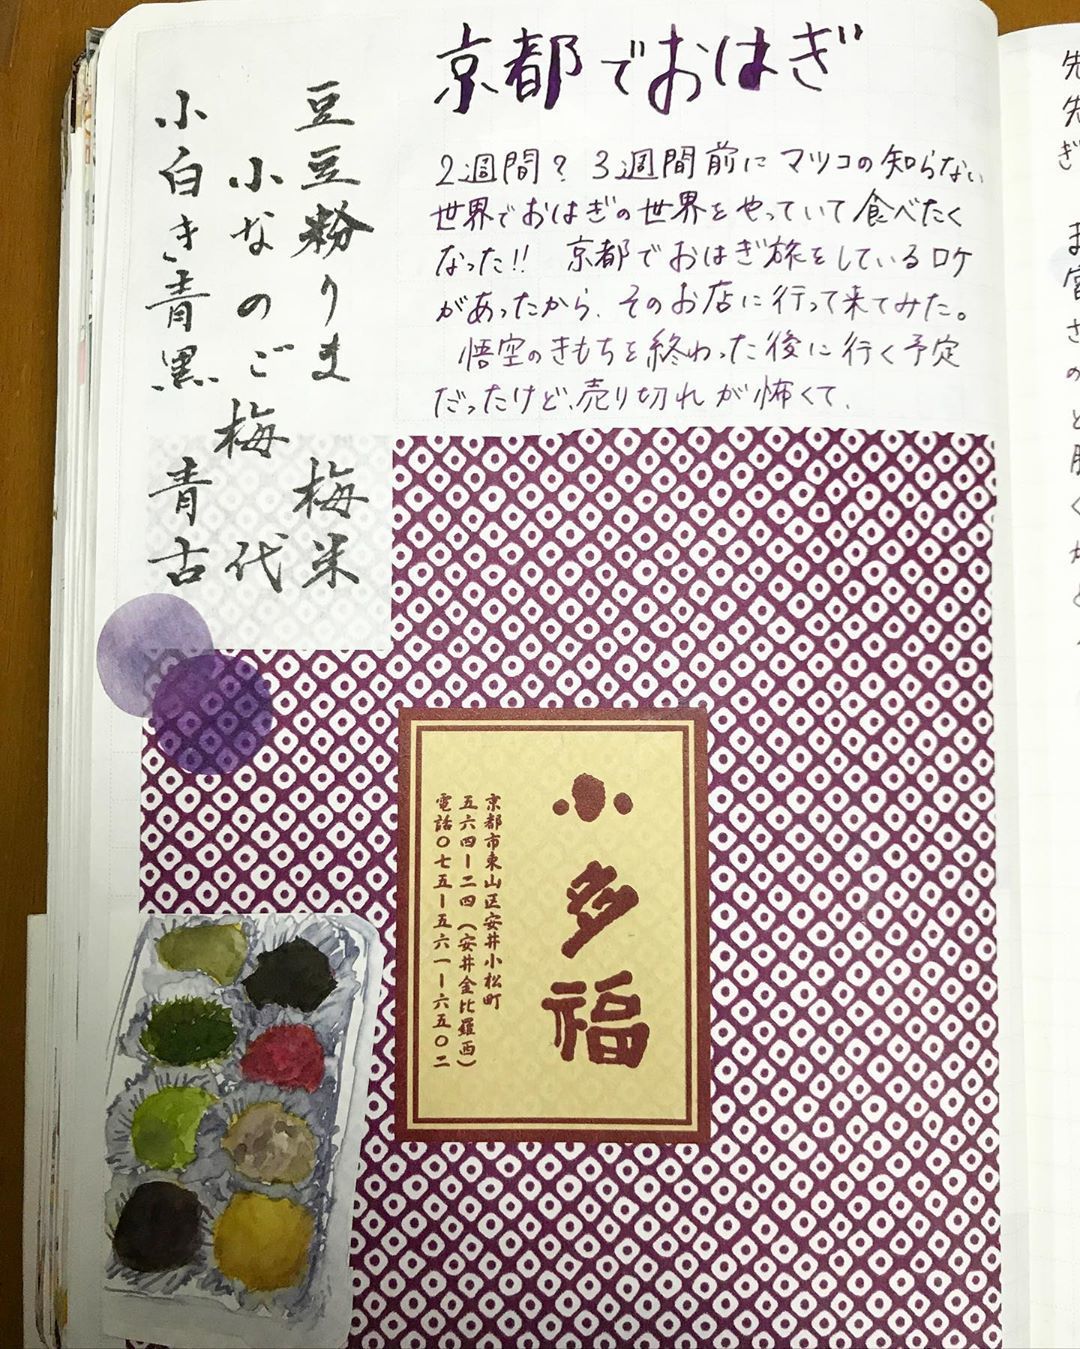 京都でおはぎ
2週間？3週間前にマツコの知らない
世界でおはぎの世界をやっていて食べたく
なった!! 京都でおはぎ旅をしているロケ
があったから、そのお店に行って来てみた。
悟空のきもちを終わった後に行く予定
だったけど、売り切れが怖くて、
豆豆粉りま 梅米
小なのご梅代
小白き青黒 青古
小多福
京都市東山区安井小松町
五六四ー二四（安井金比羅西）
電話〇七五ー五六一ー六五〇二